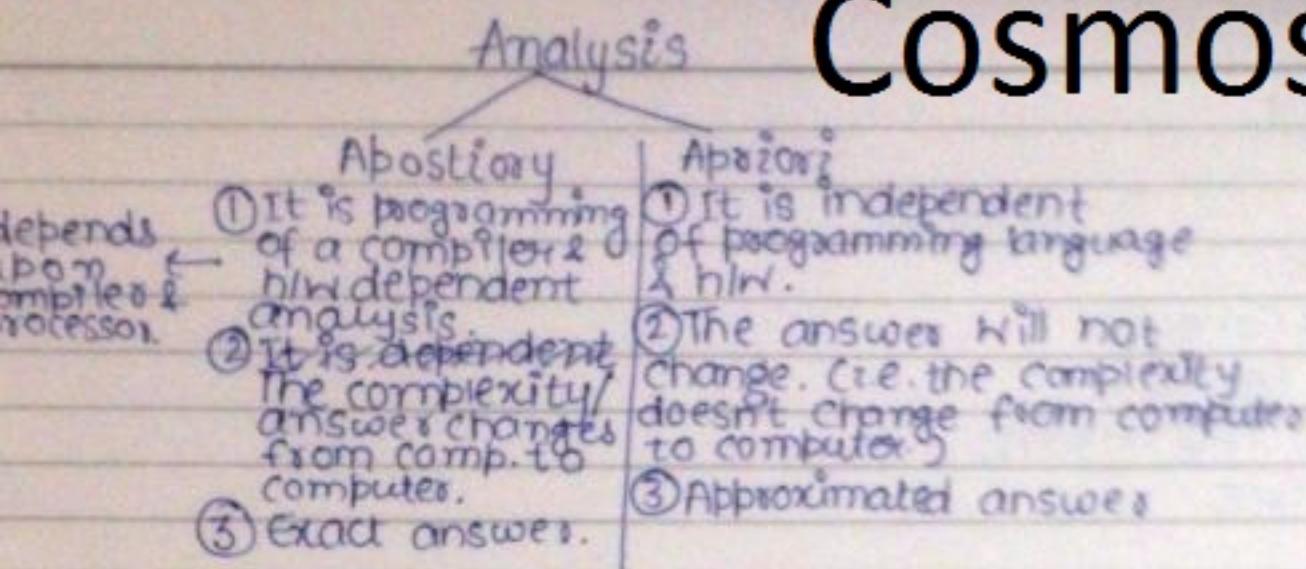 Cosmos
Analysis
Apostiory
①It is programming
of a compiler &
h/w dependent
analysis.
②It is dependent
The complexity/
answer changes
from comp. to
computer.
③ Exact answer.
depends
upon
compiler &
processor.
Apriori
①It is independent
of programming language
& h/w.
②The answer will not
change. (i.e. the complexity
doesn't change from computer
to computer)
③Approximated answer